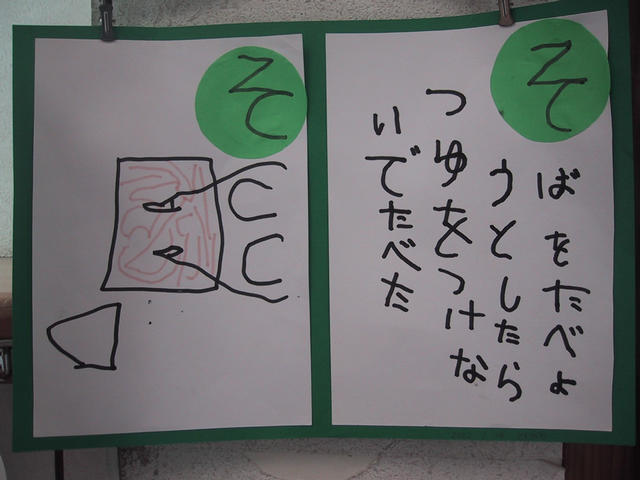 そ
ばをたべよ
うとしたら
つゆをつけな
いでたべた
そ